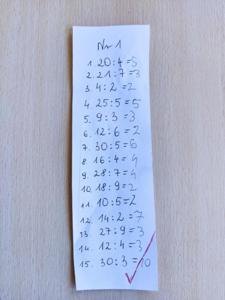 Nr 1
1. 20:4=5
2. 21:7=3
3. 4:2=2
4. 25:5=5
5. 9:3=3
6. 12:6=2
7. 30:5=6
8. 16:4=4
9. 28:7=4
10. 18:9=2
11. 10:5=2
12. 14:2=7
13. 27:9=3
14. 12:4=3
15. 30:3=10